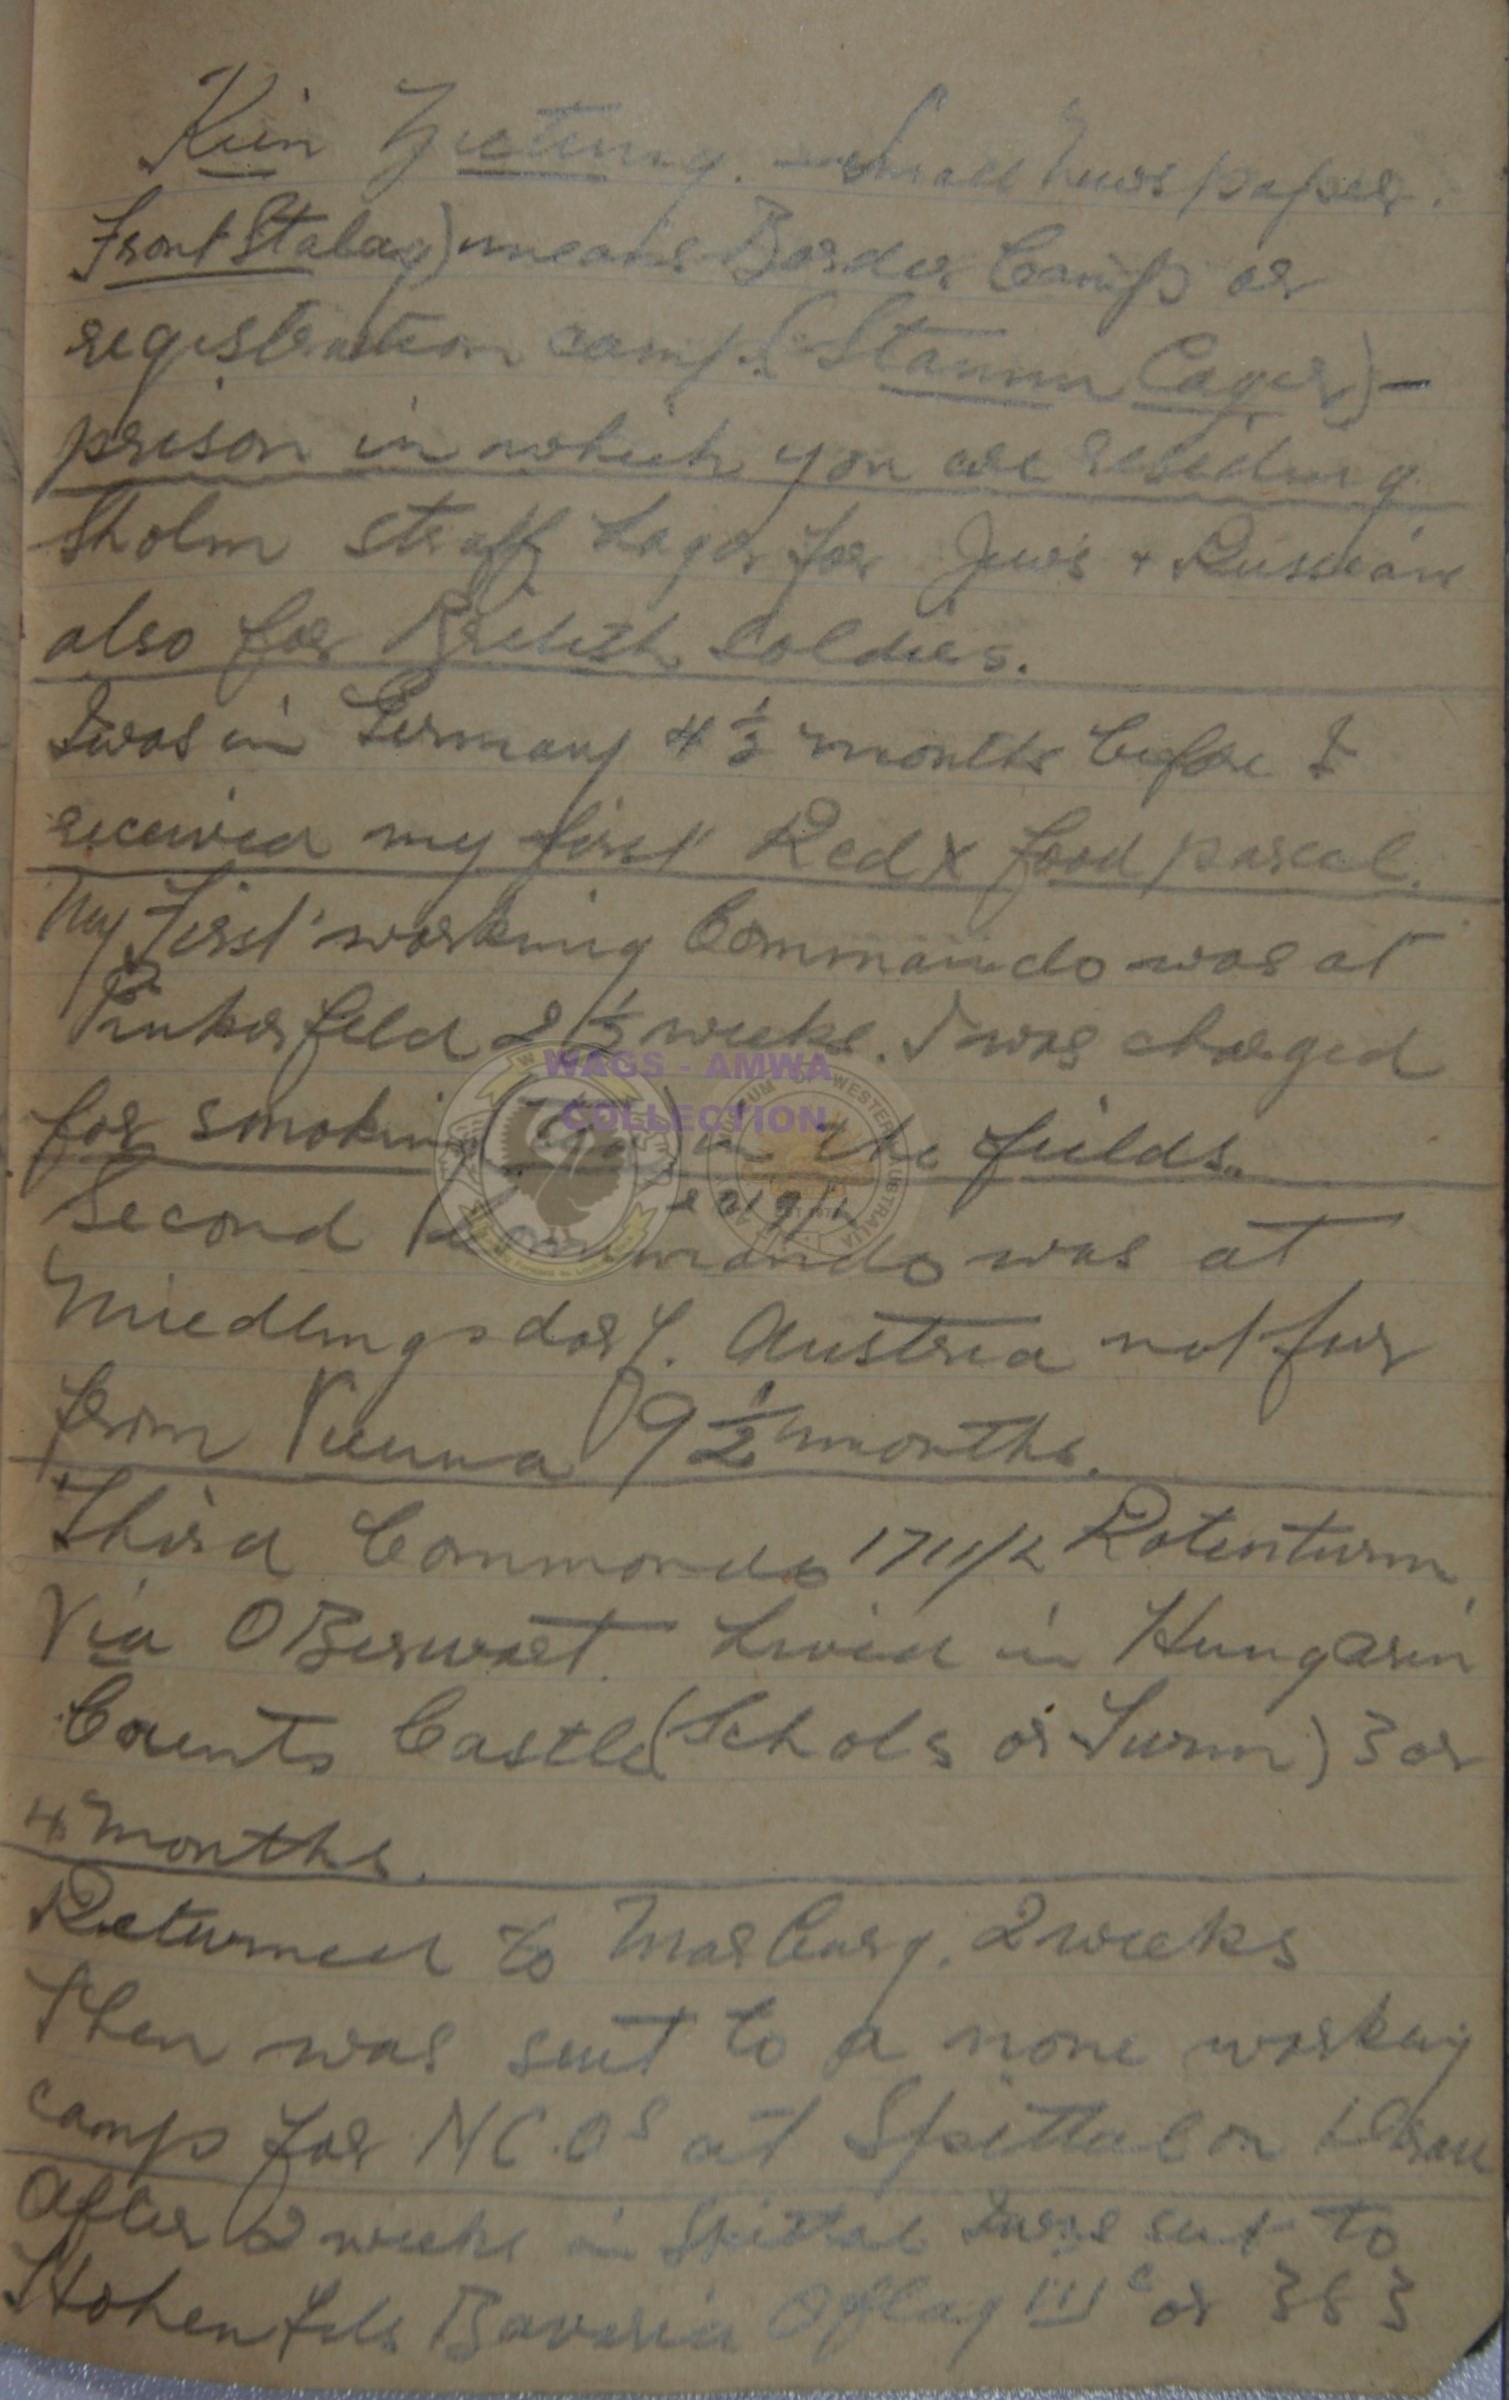 Kiin Zietung. - Small Newspaper.
Front Stalag) means Border Camp or
registration camp. (Stamm Lager) -
prison in which you are residing
Sholm straff Lager for Jews + Russians
also for British Soldiers.
I was in Germany 4 1/2 months before I
received my first Red X food parcel.
My First working Commando was at
Pinkerfeld 2 1/2 weeks. I was charged
for smoking in the fields.
Second Kommando was at
Miedlingsdorf. Austria not far
from Vienna 9 1/2 months.
Third Commando 1711/L Rotenturm,
Via OBerwart. Lived in Hungarin
Counts Castle (Schols or Turm) 3 or
4 months.
Returned to Marburg. 2 weeks
Then was sent to a none working
camp for N.C.Os at Spittal on Drau
After 2 weeks in Spittal I was sent to
Hohenfels Bavaria Oflag IIIc or 383
WAGS - AMWA
COLLECTION